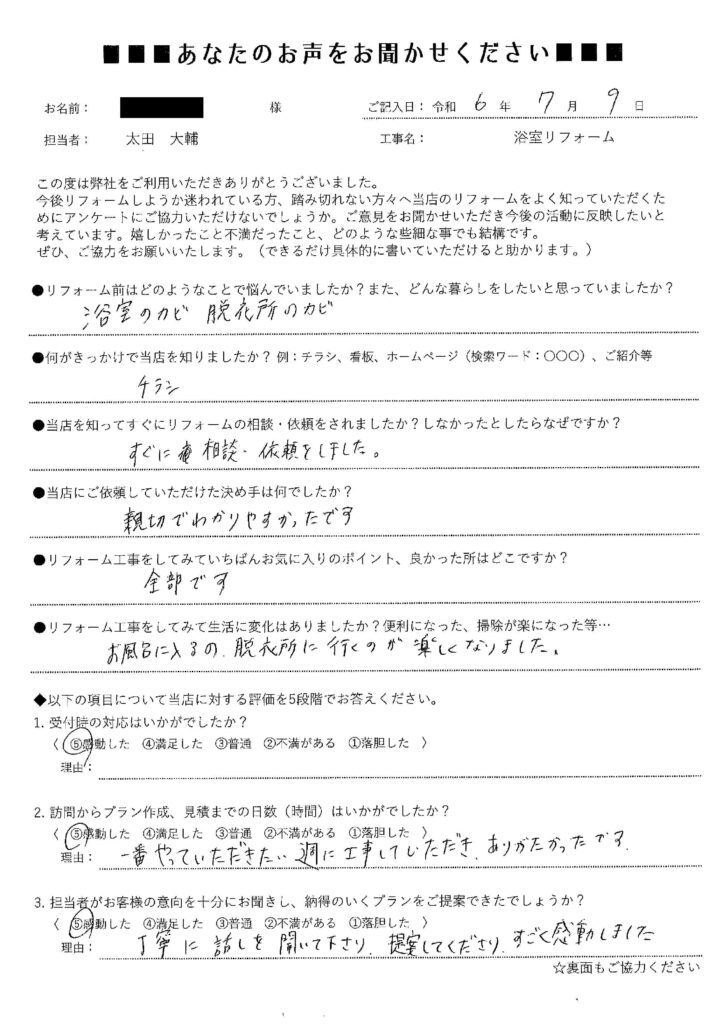 ■■■あなたのお声をお聞かせください■■■
お名前： 様 ご記入日：令和 6 年 7 月 9 日
担当者： 太田 大輔 工事名： 浴室リフォーム
この度は弊社をご利用いただきありがとうございました。
今後リフォームしようか迷われている方、踏み切れない方々へ当店のリフォームをよく知っていただくた
めにアンケートにご協力いただけないでしょうか。ご意見をお聞かせいただき今後の活動に反映したいと
考えています。嬉しかったこと不満だったこと、どのような些細な事でも結構です。
ぜひ、ご協力をお願いいたします。（できるだけ具体的に書いていただけると助かります。）
●リフォーム前はどのようなことで悩んでいましたか？また、どんな暮らしをしたいと思っていましたか？
浴室のカビ 脱衣所のカビ
●何がきっかけで当店を知りましたか？ 例：チラシ、看板、ホームページ（検索ワード：〇〇〇）、ご紹介等
チラシ
●当店を知ってすぐにリフォームの相談・依頼をされましたか？しなかったとしたらなぜですか？
すぐに 相談・依頼をしました。
●当店にご依頼していただけた決め手は何でしたか？
親切でわかりやすかったです
●リフォーム工事をしてみていちばんお気に入りのポイント、良かった所はどこですか？
全部です
●リフォーム工事をしてみて生活に変化はありましたか？便利になった、掃除が楽になった等…
お風呂に入るの、脱衣所に行くのが楽しくなりました。
◆以下の項目について当店に対する評価を5段階でお答えください。
1. 受付時の対応はいかがでしたか？
〈 ⑤感動した ④満足した ③普通 ②不満がある ①落胆した 〉
理由：
2. 訪問からプラン作成、見積までの日数（時間）はいかがでしたか？
〈 ⑤感動した ④満足した ③普通 ②不満がある ①落胆した 〉
理由： 一番やっていただきたい週に工事していただき、ありがたかったです.
3. 担当者がお客様の意向を十分にお聞きし、納得のいくプランをご提案できたでしょうか？
〈 ⑤感動した ④満足した ③普通 ②不満がある ①落胆した 〉
理由： 丁寧に話しを聞いて下さり、提案してくださり、すごく感動しました
☆裏面もご協力ください